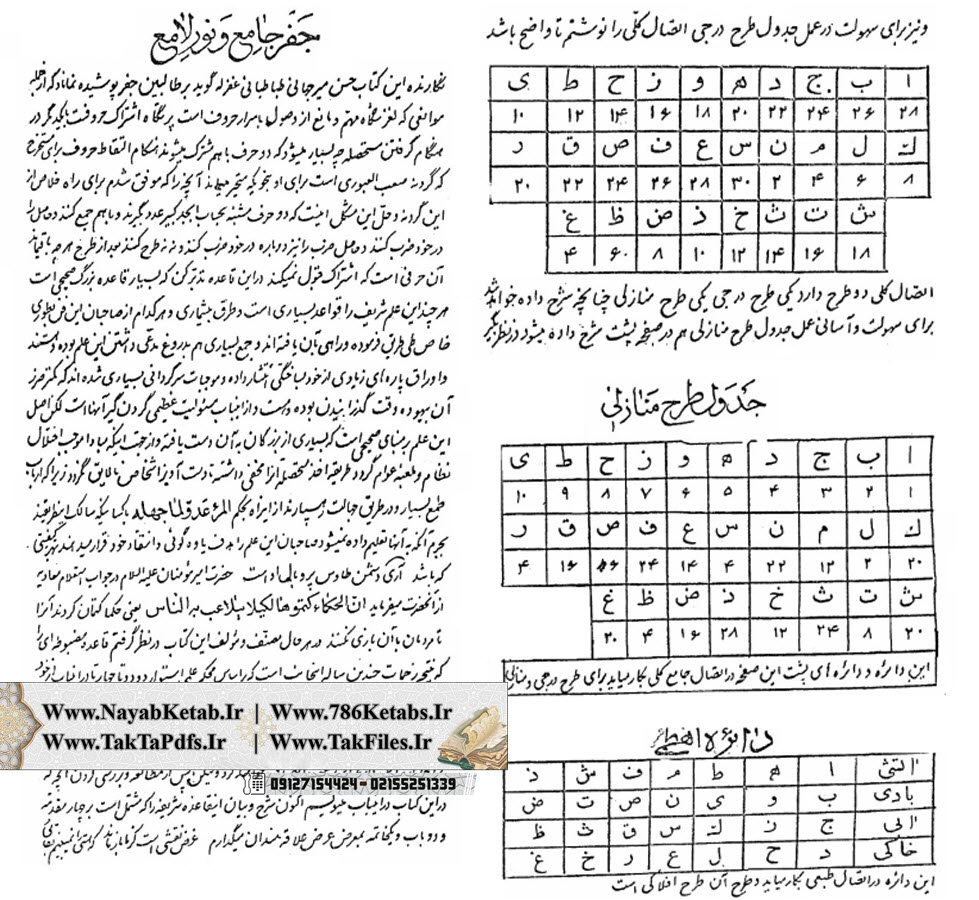 جفر جامع و نور لامع
نگارنده این کتاب حسن میرجانی طباطبائی غفر له گوید بر طالبین جفر پوشیده نماناد که از جمله
موانعی که لغزشگاه مهم و مانع از وصول باسرار حروف است پرتگاه اشتراک حروفست بایکدیگر در
هنگام گرفتن مستحصله چه بسیار میشود که دو حرف با هم مشترک میشوند هنگام التقاط حروف برای مستخرج
که گردنه صعب العبوری است برای او بنحویکه متحیر میماند آنچه را که موفق شدم برای راه خلاص از
این گردنه و حل این مشکل اینست که دو حرف مشتبه بحساب ابجد کبیر عدد بگیرند و باهم جمع کنند و حاصل را
در خود ضرب کنند و حاصل ضرب را نیز دوباره در خود ضرب کنند و نه نه طرح کنند بعد از طرح هر چه باقیماند
آن حرفی است که اشتراک قبول نمیکند در این قاعده تدبر کن که بسیار قاعده بزرگ صحیحی است
هر چند این علم شریف را قواعد بسیاری است و طرق بیشماری و هر کدام از صاحبان این فن بطوری
خاص طی طریق فرموده و راهی بآن یافته اند و جمع بسیاری هم بدروغ مدعی داشتن این علم بوده و هستند
و اوراق پاره های زیادی از خود ساختگی انتشار داده و موجبات سرگردانی بسیاری شده اند که کمتر ضرر
آن بیهوده وقت گذرانیدن بوده و هست و از اینباب مسئولیت عظیمی گردن گیر آنها است لکن اصل
این علم بر مبنای صحیحی است که بسیاری از بزرگان به آن دست یافته و از جهت اینکه مبادا موجب اختلال
نظام و ملعبه عوام گردد طریقه اخذ مستحصله آنرا مخفی داشته تا دست آویز اشخاص نالایق نگردد زیرا که ارباب
طمع بسیار و در طریق جهالت رهسپارند از اینراه بحکم المرء عدو لما جهله
بجرم آنکه به آنها تعلیم داده نمیشود صاحبان این علم را هدف یاوه گوئی و انتقاد خود قرار میدهند بهر کیفیتی
که باشد آری دشمن طاوس پر و بال او است حضرت امیر مؤمنان علیه السلام در جواب استعلام معاویه
از آنحضرت میفرماید ان الحکماء کتموها لکیلا یلاعب بها الناس یعنی حکما کتمان کردند آنرا
تا مردمان با آن بازی نکنند در هر حال مصنف و مؤلف این کتاب در نظر گرفتم قاعده مضبوطه ای را
Www.NayabKetab.Ir | Www.786Ketabs.Ir
Www.TakTaPdfs.Ir | Www.TakFiles.Ir
09127154424 - 02155251339
در این کتاب در اینباب مینویسیم اکنون شرح و بیان اینقاعده شریفه را که مشتمل است بر چهار مقدمه
و دو باب و یکخاتمه بمعرض عرض علاقه مندان میگذارم غرض نقشی است کز ما باز ماند که هستی را نمیبینم بقائی
و نیز برای سهولت در عمل جدول طرح درجی اتصال کلی را نوشتم تا واضح باشد
ا ب ج د ه و ز ح ط ی
۲۸ ۲۶ ۲۴ ۲۲ ۲۰ ۱۸ ۱۶ ۱۴ ۱۲ ۱۰
ك ل م ن س ع ف ص ق ر
۸ ۶ ۴ ۲ ۳۰ ۲۸ ۲۶ ۲۴ ۲۲ ۲۰
ش ت ث خ ذ ض ظ غ
۱۸ ۱۶ ۱۴ ۱۲ ۱۰ ۸ ۶۰ ۴
اتصال کلی دو طرح دارد یکی طرح درجی یکی طرح منازلی چنانچه شرح داده خواهد شد
برای سهولت و آسانی عمل جدول طرح منازلی هم در صفحه پشت شرح داده میشود در نظر بگیر
جدول طرح منازلی
ا ب ج د ه و ز ح ط ی
۱ ۲ ۳ ۴ ۵ ۶ ۷ ۸ ۹ ۱۰
ك ل م ن س ع ف ص ق ر
۲۰ ۲ ۱۲ ۲۲ ۴ ۱۴ ۲۴ ۶ ۱۶ ۴
ش ت ث خ ذ ض ظ غ
۲۰ ۸ ۲۴ ۱۲ ۲۸ ۱۶ ۴ ۲۰
این دائره و دائره های پشت این صفحه در اتصال جامع کلی بکار میاید برای طرح درجی و منازلی
دائره اهطم
آتشی ا ه ط م ف ش ذ
بادی ب و ی ن ص ت ض
آبی ج ز ك س ق ث ظ
خاکی د ح ل ع ر خ غ
این دائره در اتصال طبیعی بکار میاید و طرح آن طرح افلاکی است